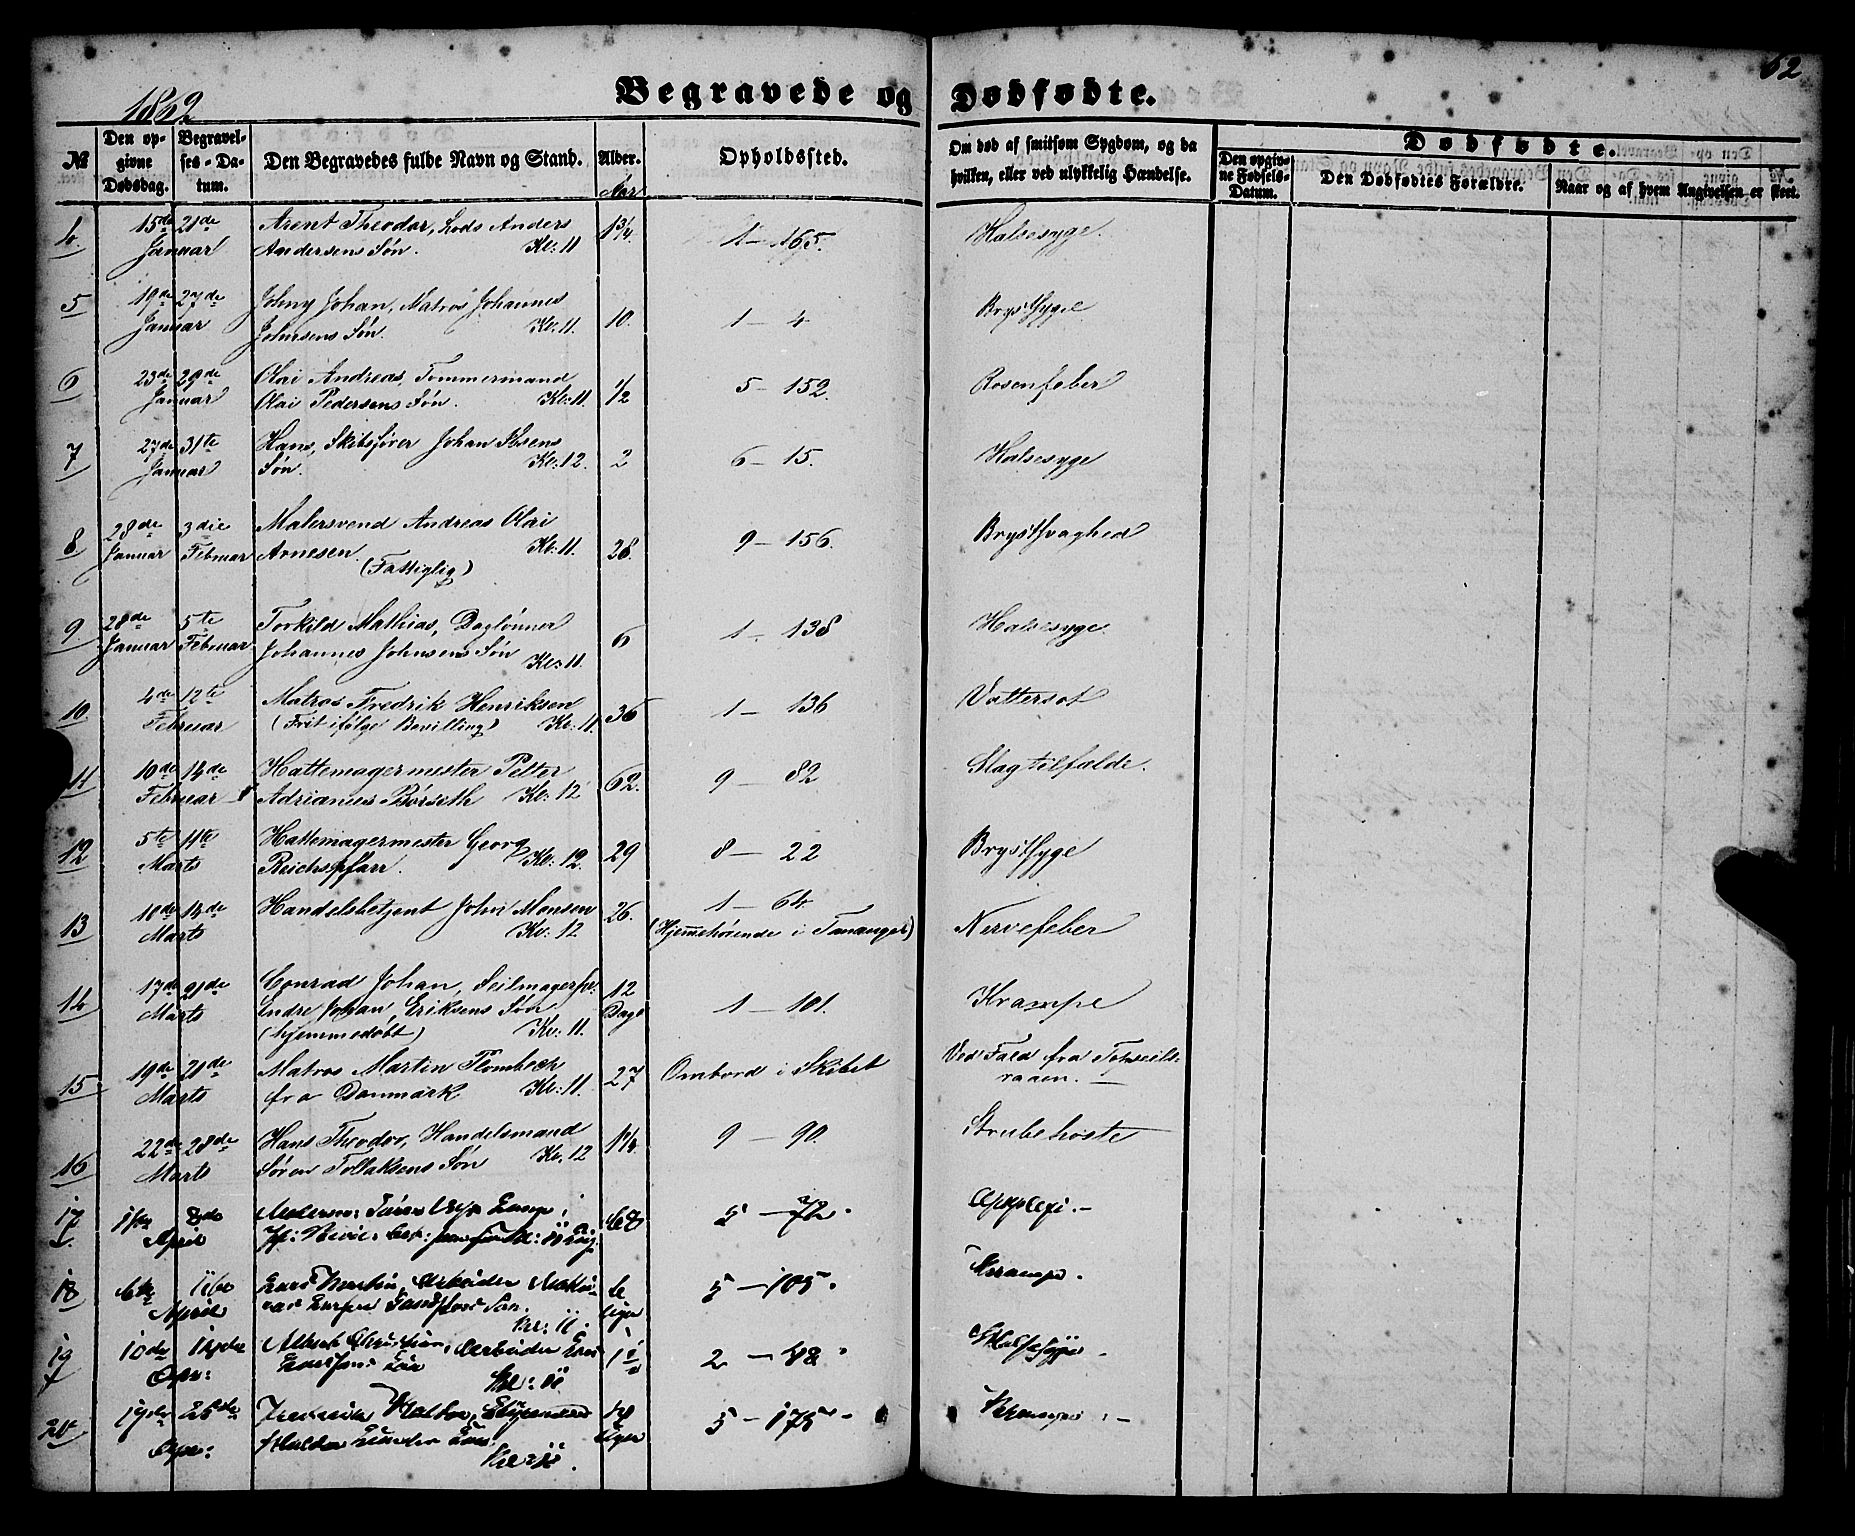 62
1862
Begravede og Dødfødte.
№
Den opgivne Dødsdag.
Begravelses-Datum.
Den Begravedes fulde Navn og Stand.
Alder.
Aar
Opholdssted.
Om død af smitsom Sygdom, og da
hvilken, eller ved ulykkelig Hændelse.
Dødfødte.
Den opgivne Fødsels-Datum.
Den Dødfødtes Forældre.
Naar og af hvem Angivelsen er skeet.
4 15de 21de Arent Theodor, Lods Anders 1¾ 1 – 165. Halsesyge.
Januar Andersens Søn. Kl: 11
5 19de 27de Johny Johan, Matros Johannes 10. 1 – 4 Brystsyge
Januar Johnsens Søn. Kl: 11.
6 23de 29de Olai Andreas, Tømmermand ½ 5 – 152. Rosenfeber
Januar Olai Pedersens Søn. Kl: 11.
7 27de 31te Hans, Skibsfører Johan Ibsens 2 6 – 15. Halsesyge
Januar Søn. Kl: 12.
8 28de 3die Malersvend Andreas Olai 28. 9 – 156. Brystsvaghed
Januar Februar Arnesen. Kl: 11.
(Fattiglig)
9 28de 5te Torkild Mathias, Daglønner 6 1 – 138 Halsesyge
Januar Februar Johannes Johnsens Søn
Kl: 11.
10 4de 12te Matros Fredrik Henriksen 36 1 – 136 Vattersot
Februar (Frit ifølge Bevilling) Kl: 11.
11 10de 14de Hattemagermester Petter 62. 9 – 82 Slagtilfælde.
Februar Adrianus Børseth Kl: 12
12 5te 11te Hattemagermester Georg 29 8 – 22 Brystsyge
Marts Reichspfarr. Kl: 12.
13 10de 14de Handelsbetjent John Monsen 26. 1 – 64. Nervefeber
Marts Kl: 12 (Hjemmehørende i Tananger)
14 17de 21de Conrad Johan, Seilmagersv: 12 1 – 101. Krampe
Marts Endre Johan Eriksens Søn Dage
(hjemmedøbt) Kl: 11.
15 19de 21de Matros Martin Plombech 27 Ombord i Skibet Ved Fald fra Topseils-
Marts fra Danmark Kl: 11. raaen. –
16 22de 28de Hans Theodor, Handelsmand 1¼ 9 – 90. Strubehoste
Marts Søren Tollaksens Søn Kl: 12
17 1ste 8de 68 5 – 72. Applexi. –
April
18 6te 11te Lars Martin, Arbeider 6 5 – 105. Krampe.
April Søn. Uger
Kl: 11.
19 10de 14de Albert Christian, Arbeider 1½ 2 – 48. Halsesyge
Apr: Søn
Kl: 11
20 19de 25de 5 – 175 – Krampe. –
Apr: Søn. Uger
Kl: 11.